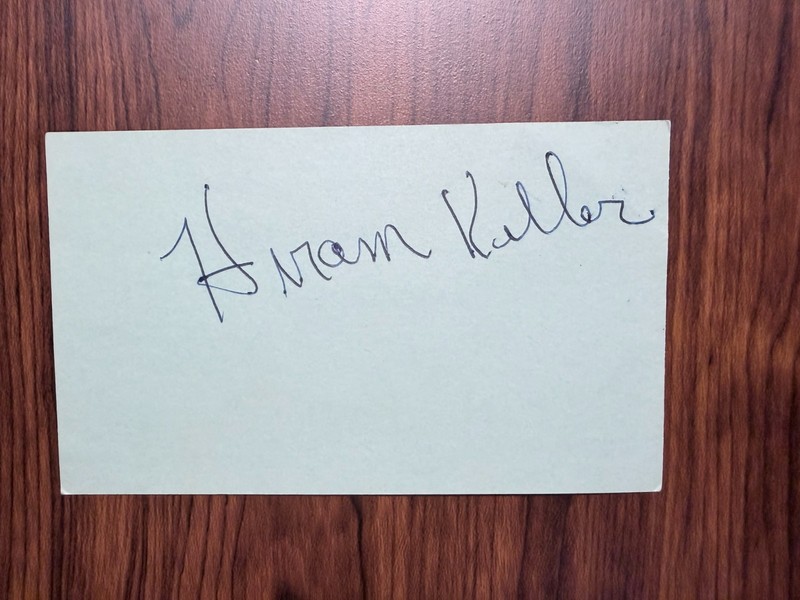 Hiram Keller